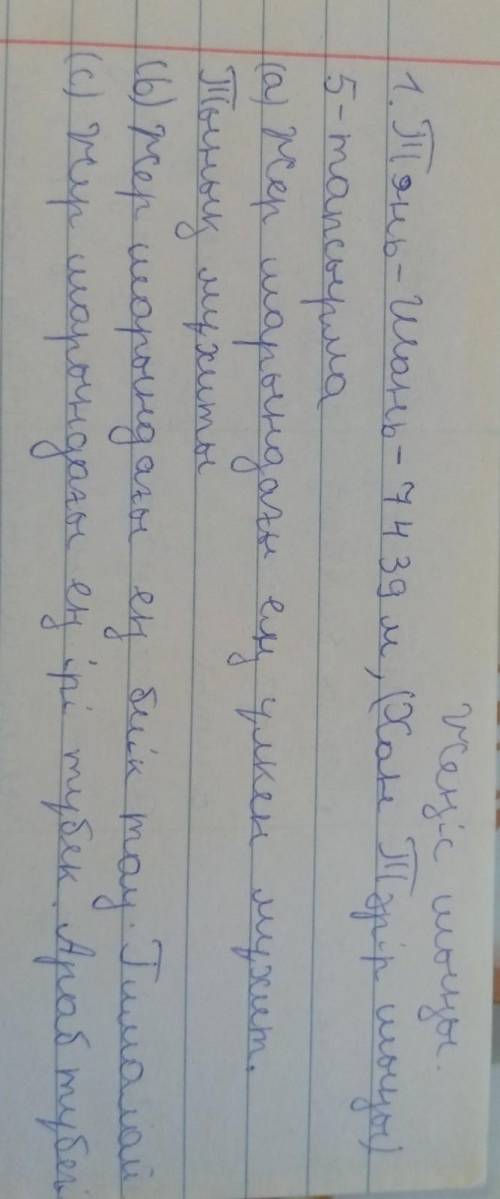 Жеңіс шыңы.
1. Тянь-Шань - 7439 м, (Хан Тәңір шыңы)
5-тапсырма
(a) Жер шарындағы ең үлкен мұхит.
Тынық мұхиты
(b) Жер шарындағы ең биік тау. Гималай
(c) Жер шарындағы ең ірі түбек. Араб түбегі